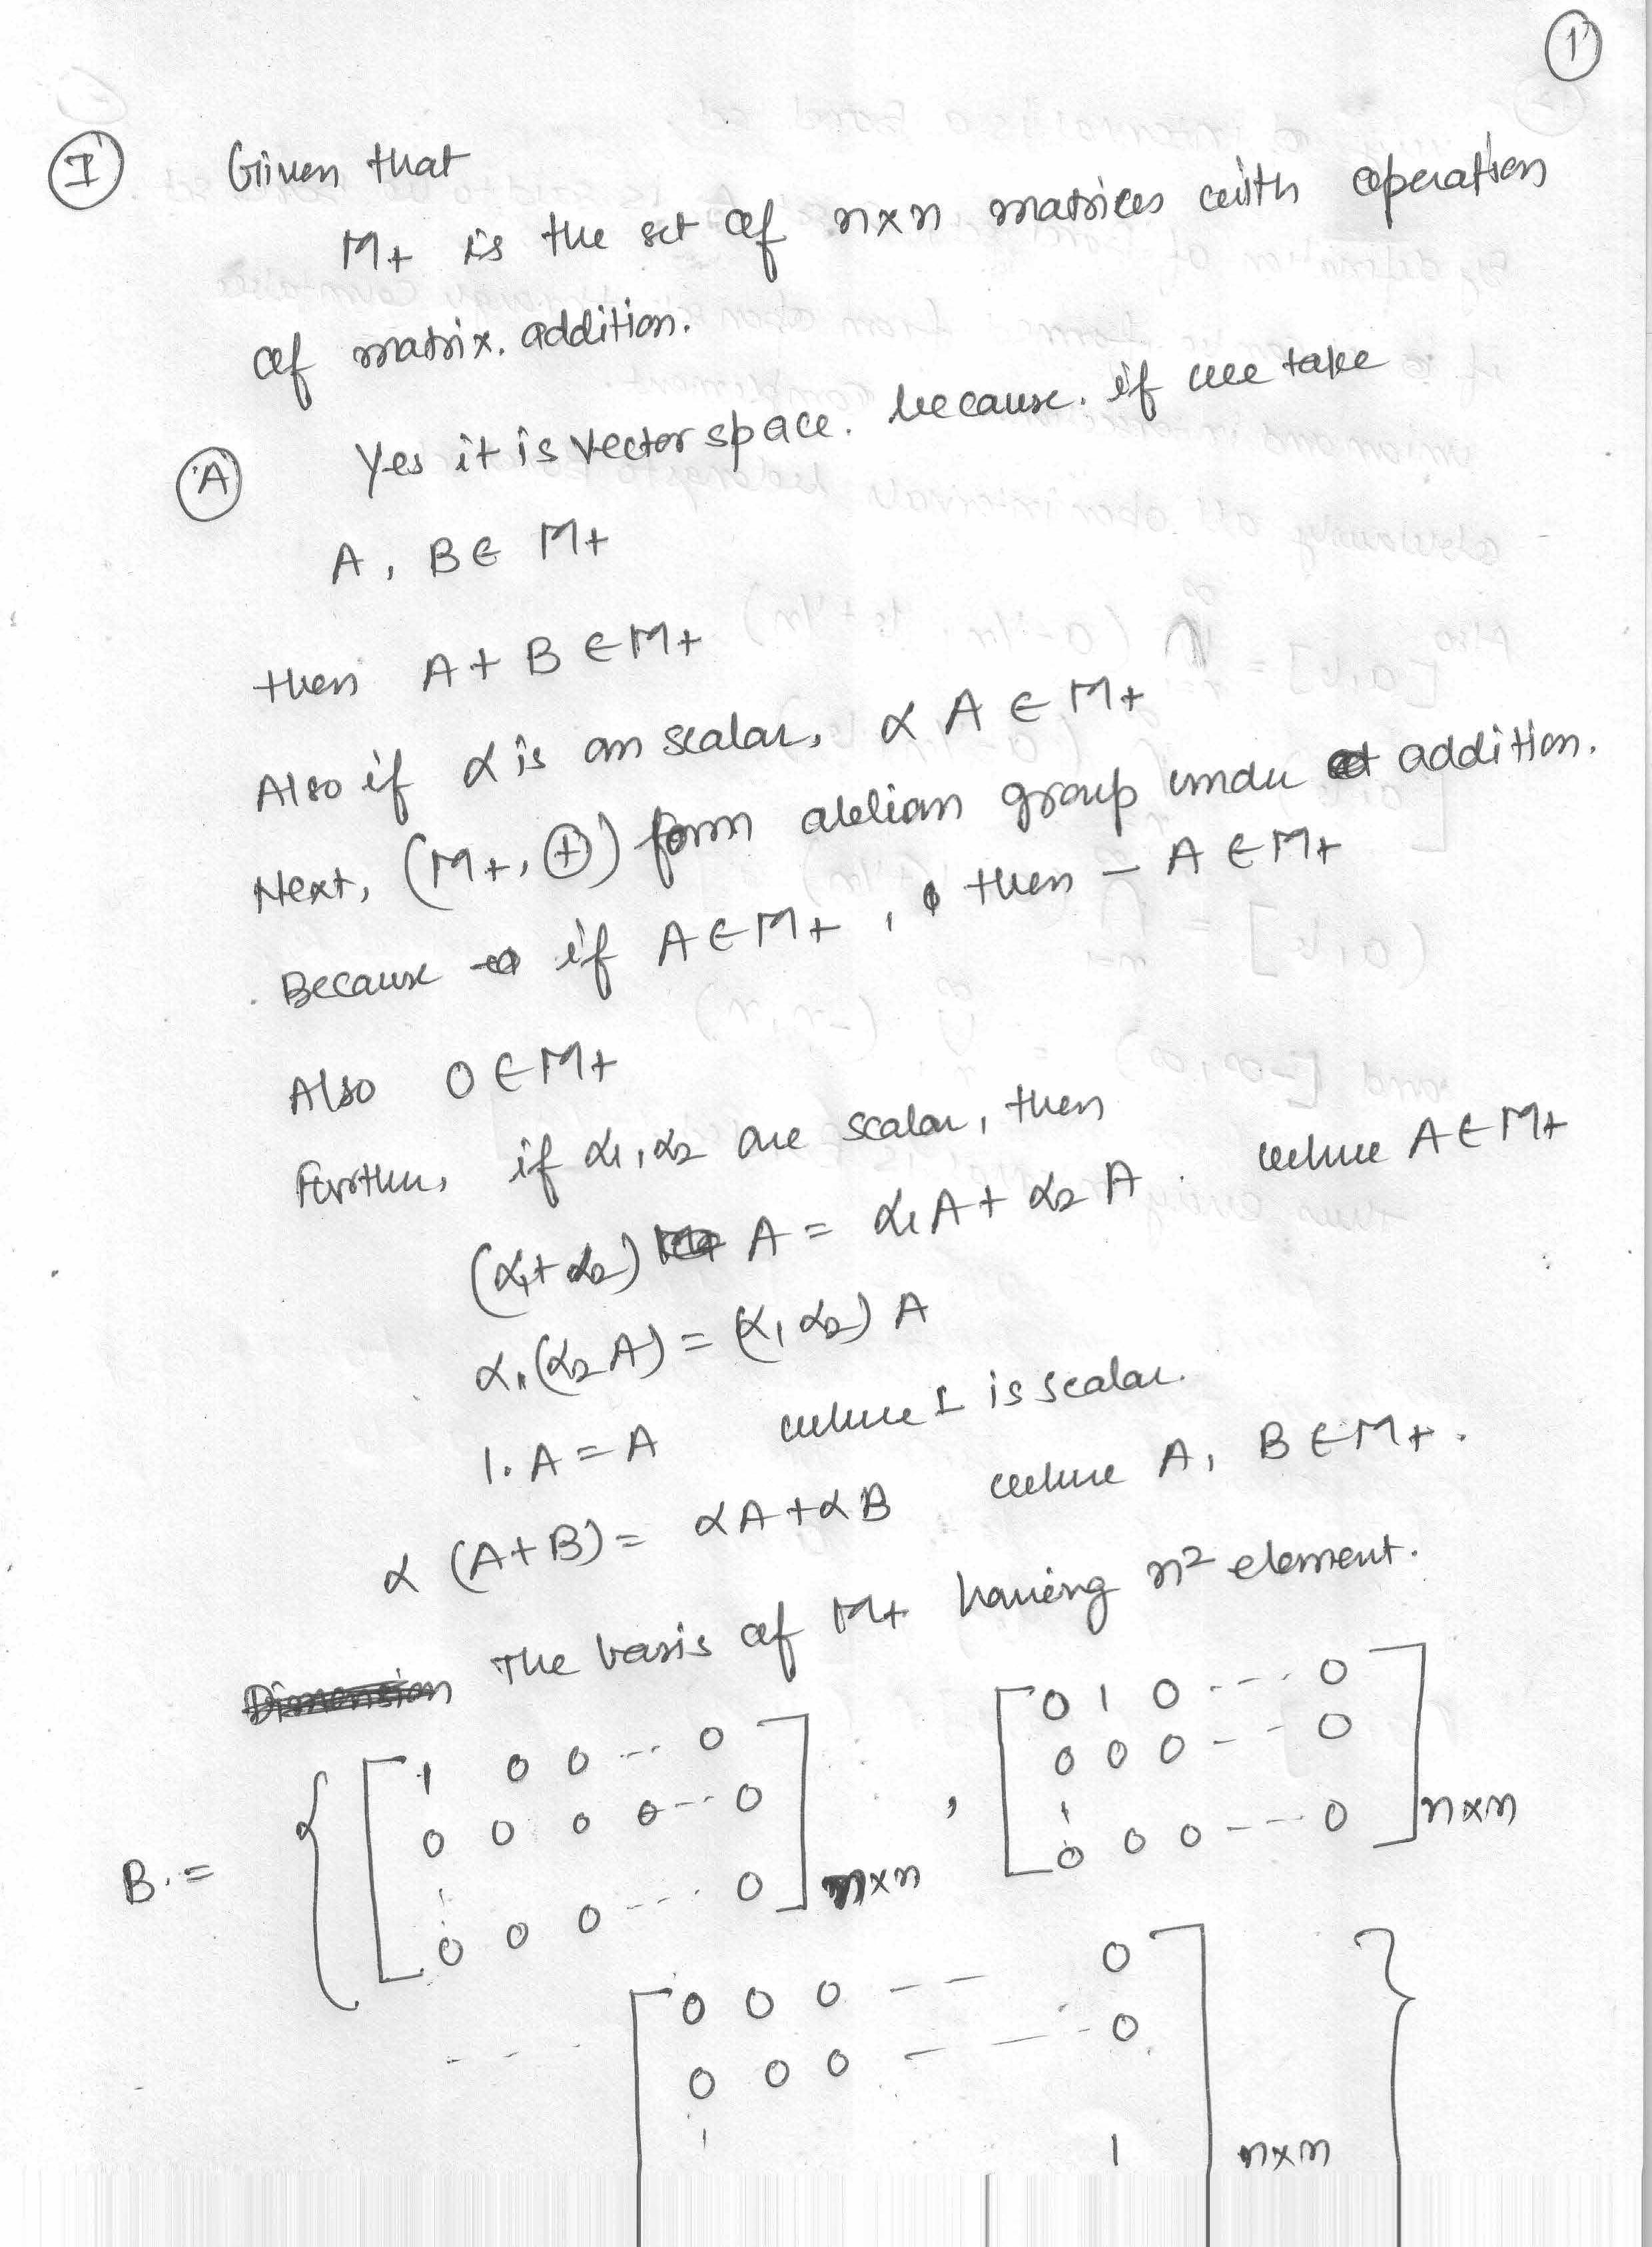 1
I Given that
M+ is the set of n×n matrices with operation
of matrix. addition.
A Yes it is vector space. because. if we take
A, B ∈ M+
then A + B ∈ M+
Also if α is an scalar, α A ∈ M+
Next, (M+, ⊕) form abelian group under addition.
Because if A ∈ M+, then - A ∈ M+
Also 0 ∈ M+
Further, if α1, α2 are scalar, then
(α1 + α2) A = α1 A + α2 A. where A ∈ M+
α1 (α2 A) = (α1 α2) A
1. A = A where 1 is scalar.
α (A + B) = αA + αB where A, B ∈ M+.
Dimension The basis of M+ having n² element.
B. = { [ 1 0 0 --- 0
0 0 0 0 --- 0
⋮
0 0 0 --- 0 ] n×n , [ 0 1 0 --- 0
0 0 0 -- 0
⋮
0 0 0 --- 0 ] n×n
--- [ 0 0 0 -- 0
0 0 0 --- 0
⋮ 1 ] n×n }